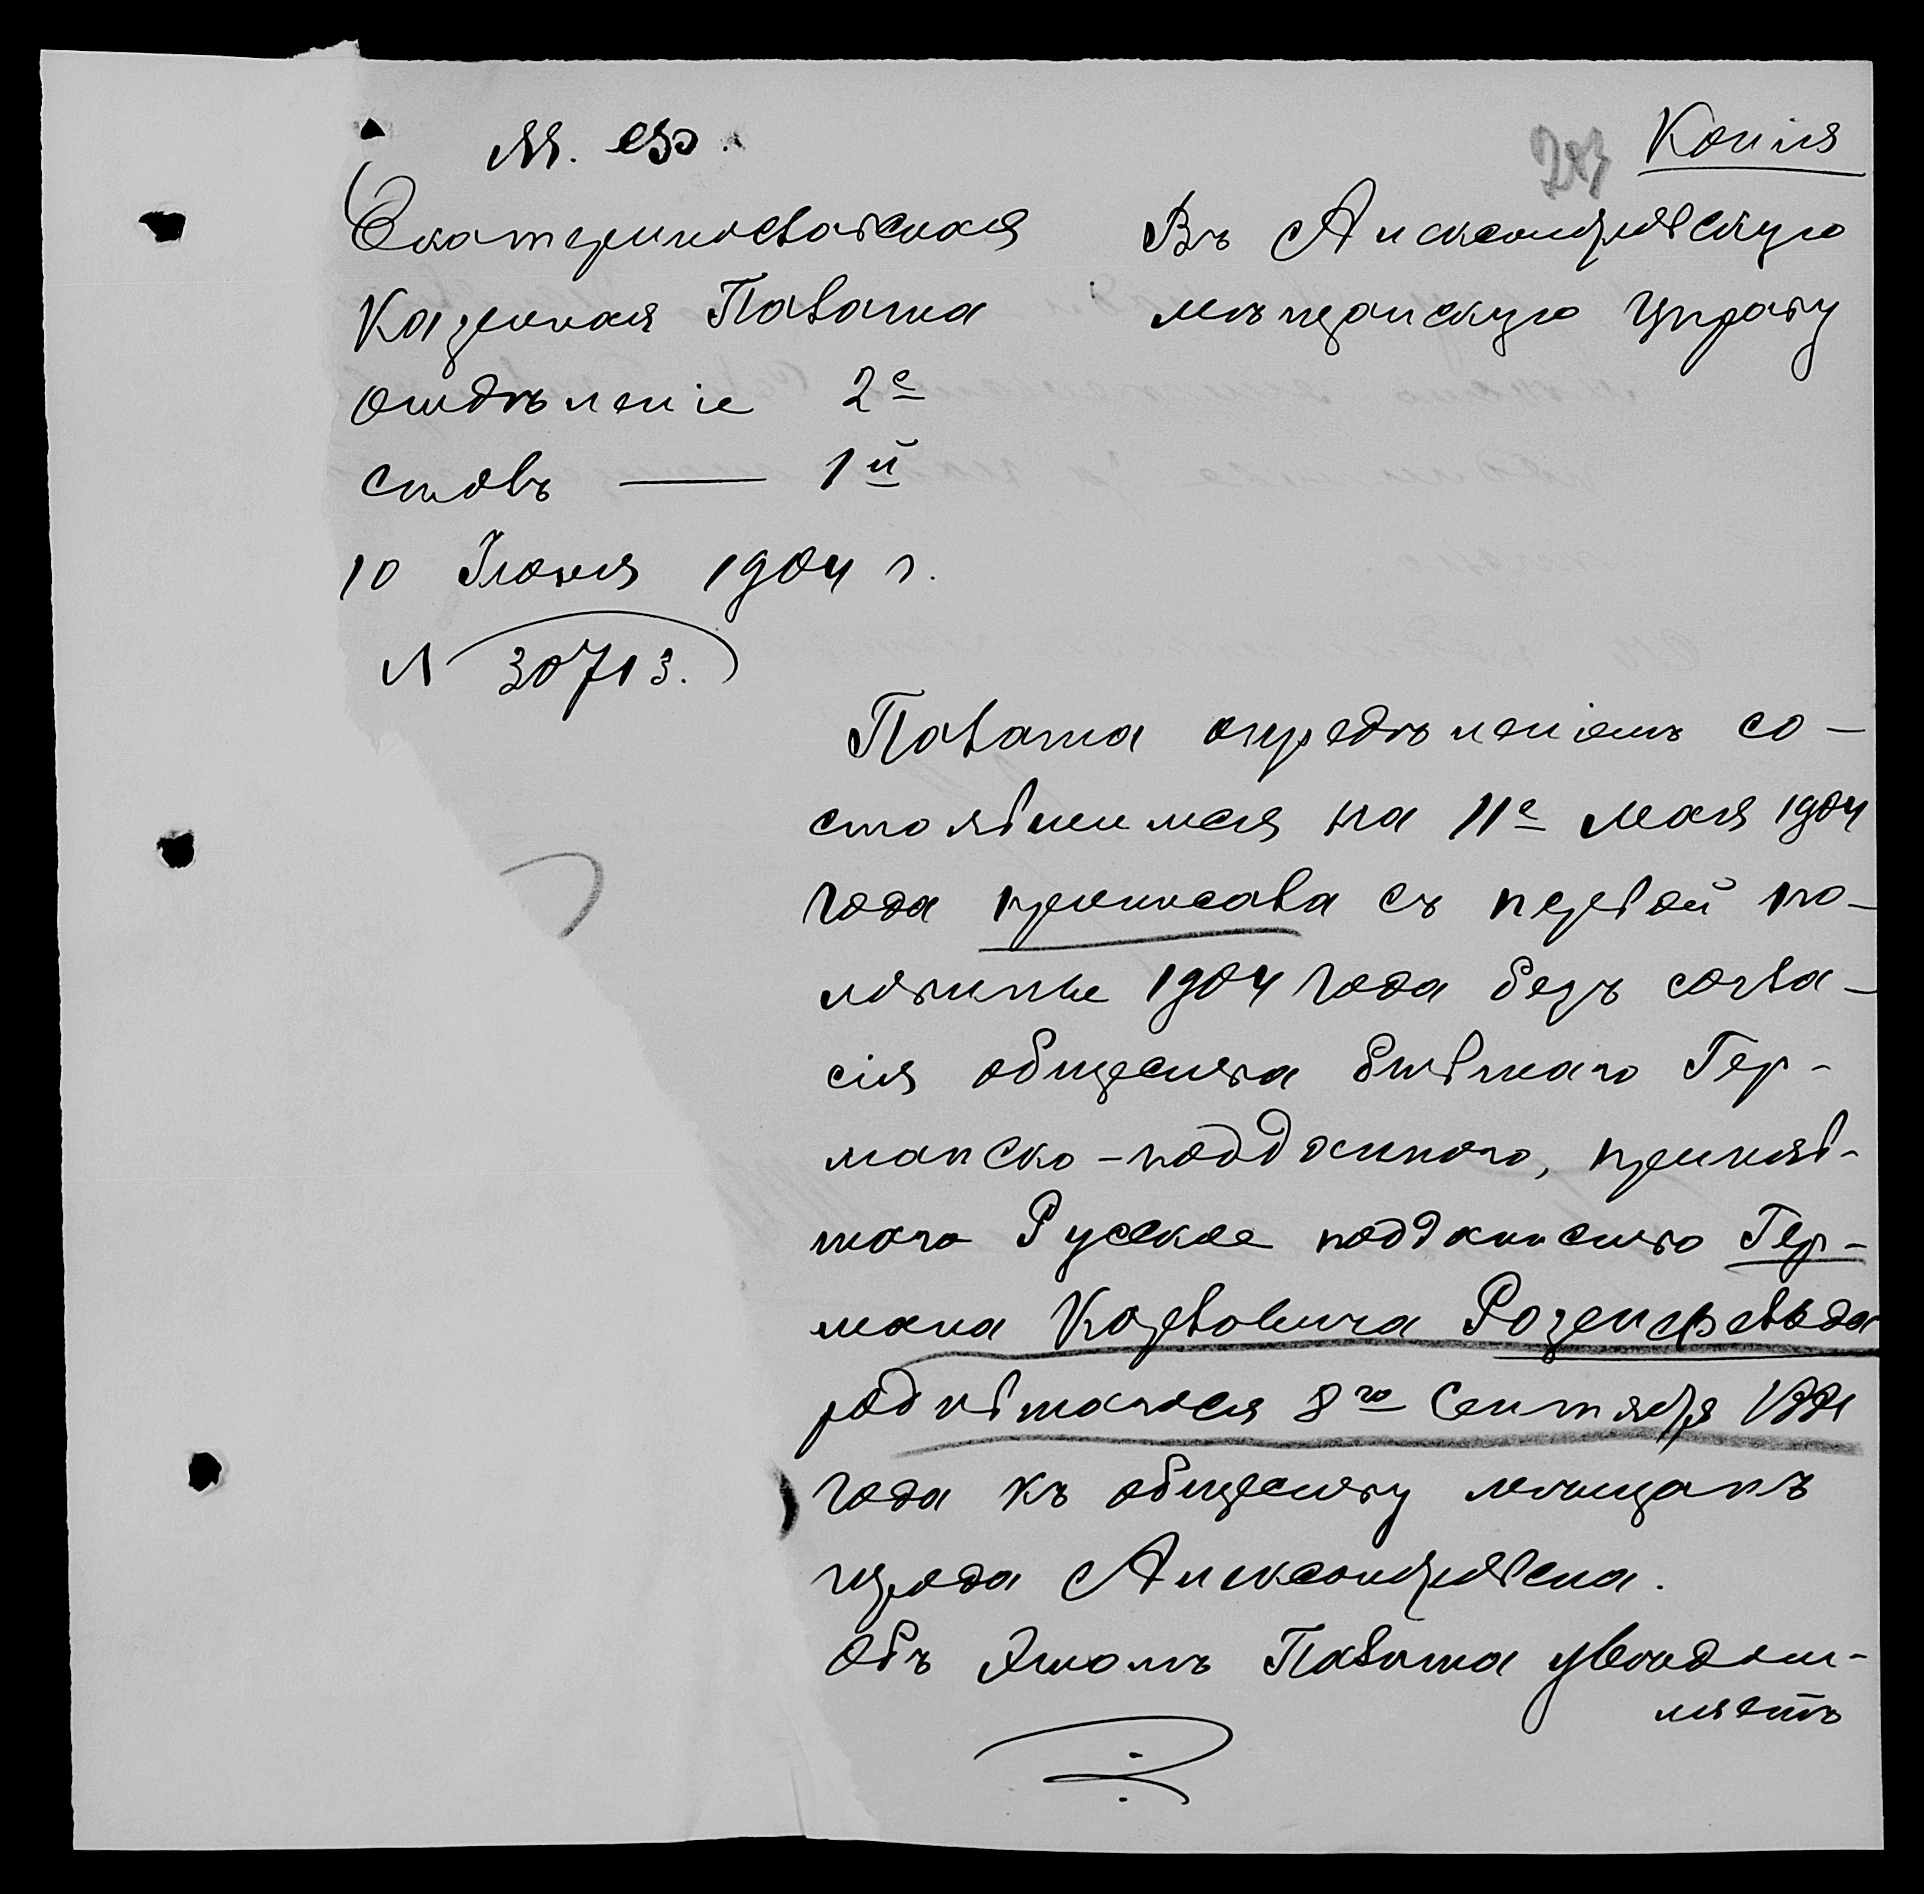 М. Ф.
Копія
Екатеринославская
Казенная Палата
отдѣленіе 2е
столъ — 1й
10 Іюня 1904 г.
N 30713.
Въ Александровскую
мѣщанскую Управу
Палата опредѣленіемъ со-
стоявшимся на 11е Мая 1904
года причислила съ первой по-
ловины 1904 года безъ согла-
сія общества бывшаго Гер-
манско-подданного, приняв-
шаго Русское подданство Гер-
мана Карловича Розенфельда
родившагося 8го Сентября
года къ обществу мещанъ
города Александровска.
Объ этомъ Палата увѣдом-
ляетъ